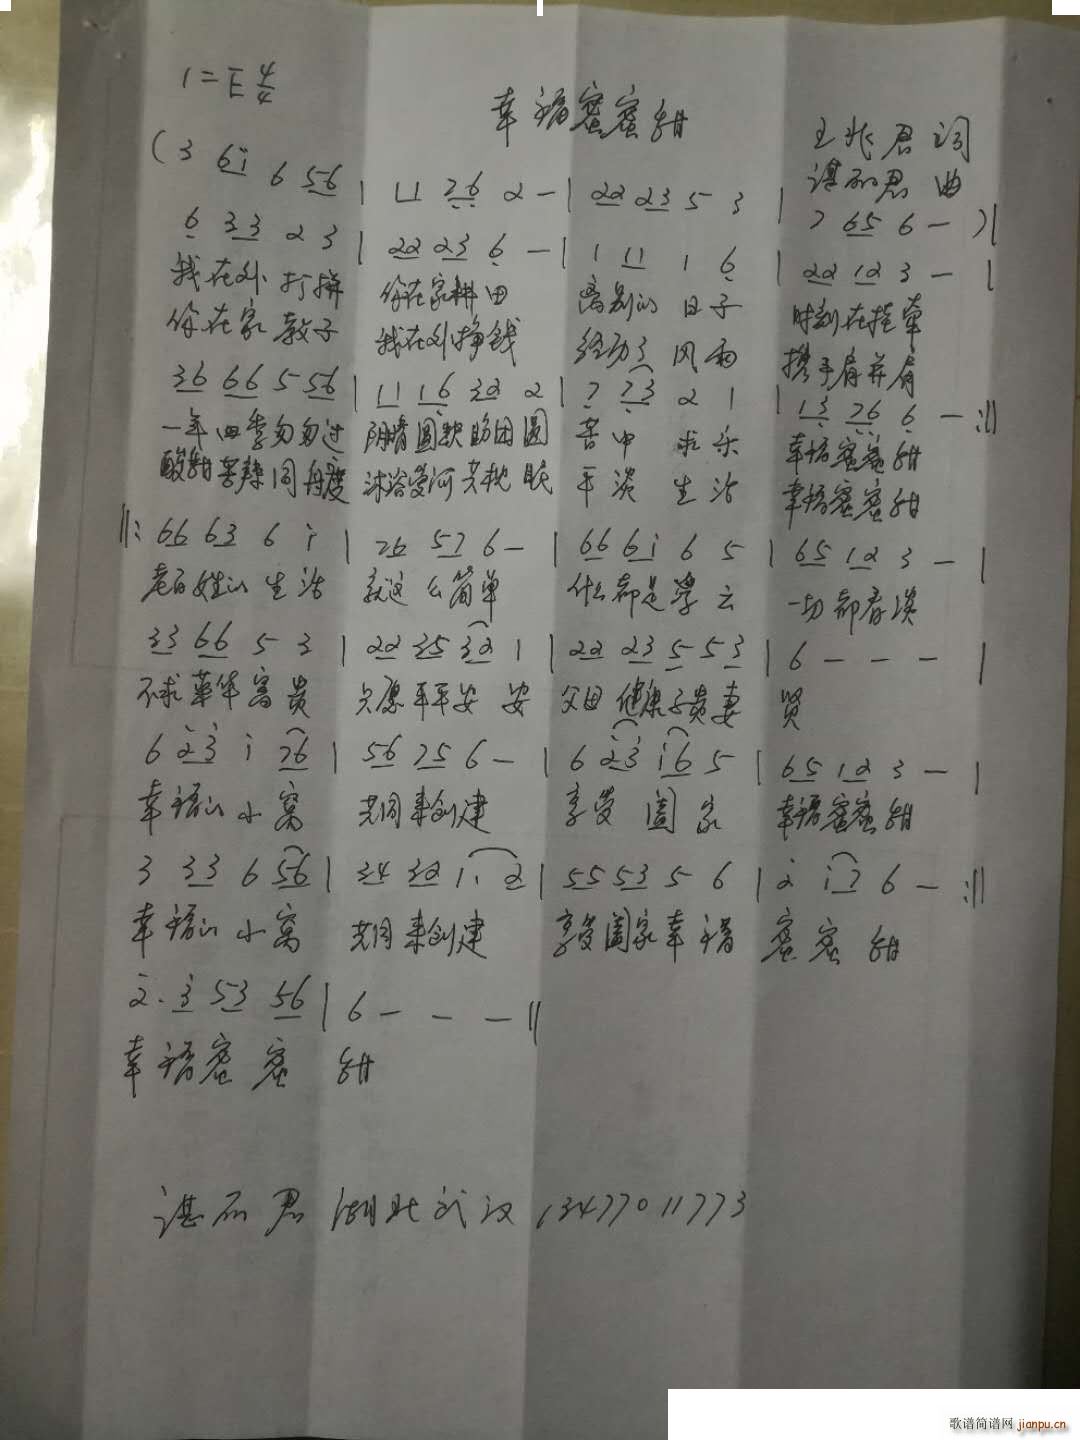 1=E 4/4
幸福蜜蜜甜
王兆君 词
谌丽君 曲
(3 6i 6 56 | 11 76 2 - | 22 23 5 3 | 7 65 6 - )|
6 33 2 3 | 22 23 6 - | 1 11 1 6 | 22 12 3 - |
我在外打拼 你在家耕田 离别的日子 时刻在挂牵
你在家教子 我在外挣钱 经历了风雨 携手肩并肩
36 66 5 56 | 11 16 32 2 | 7 73 2 1 | 13 76 6 - :||
一年四季匆匆过 阴晴圆缺盼团圆 苦中求乐 幸福蜜蜜甜
酸甜苦辣同舟度 沐浴爱河共枕眠 平淡生活 幸福蜜蜜甜
||: 66 63 6 i | 76 57 6 - | 66 6i 6 5 | 65 12 3 - |
老百姓的生活 就这么简单 什么都是浮云 一切都看淡
33 66 5 3 | 22 35 32 1 | 22 23 5 53 | 6 - - - |
不求荣华富贵 只愿平平安安 父母健康子贵妻 贤
6 23 i 76 | 56 75 6 - | 6 23 i6 5 | 65 12 3 - |
幸福的小窝 共同来创建 享受阖家 幸福蜜蜜甜
3 33 6 56 | 34 32 1. 2 | 55 53 5 6 | 2 i7 6 - :||
幸福的小窝 共同来创建 享受阖家幸福 蜜蜜甜
2. 3 53 56 | 6 - - - ||
幸福蜜蜜 甜
谌丽君 湖北武汉 13477011773
歌谱简谱网 jianpu.cn